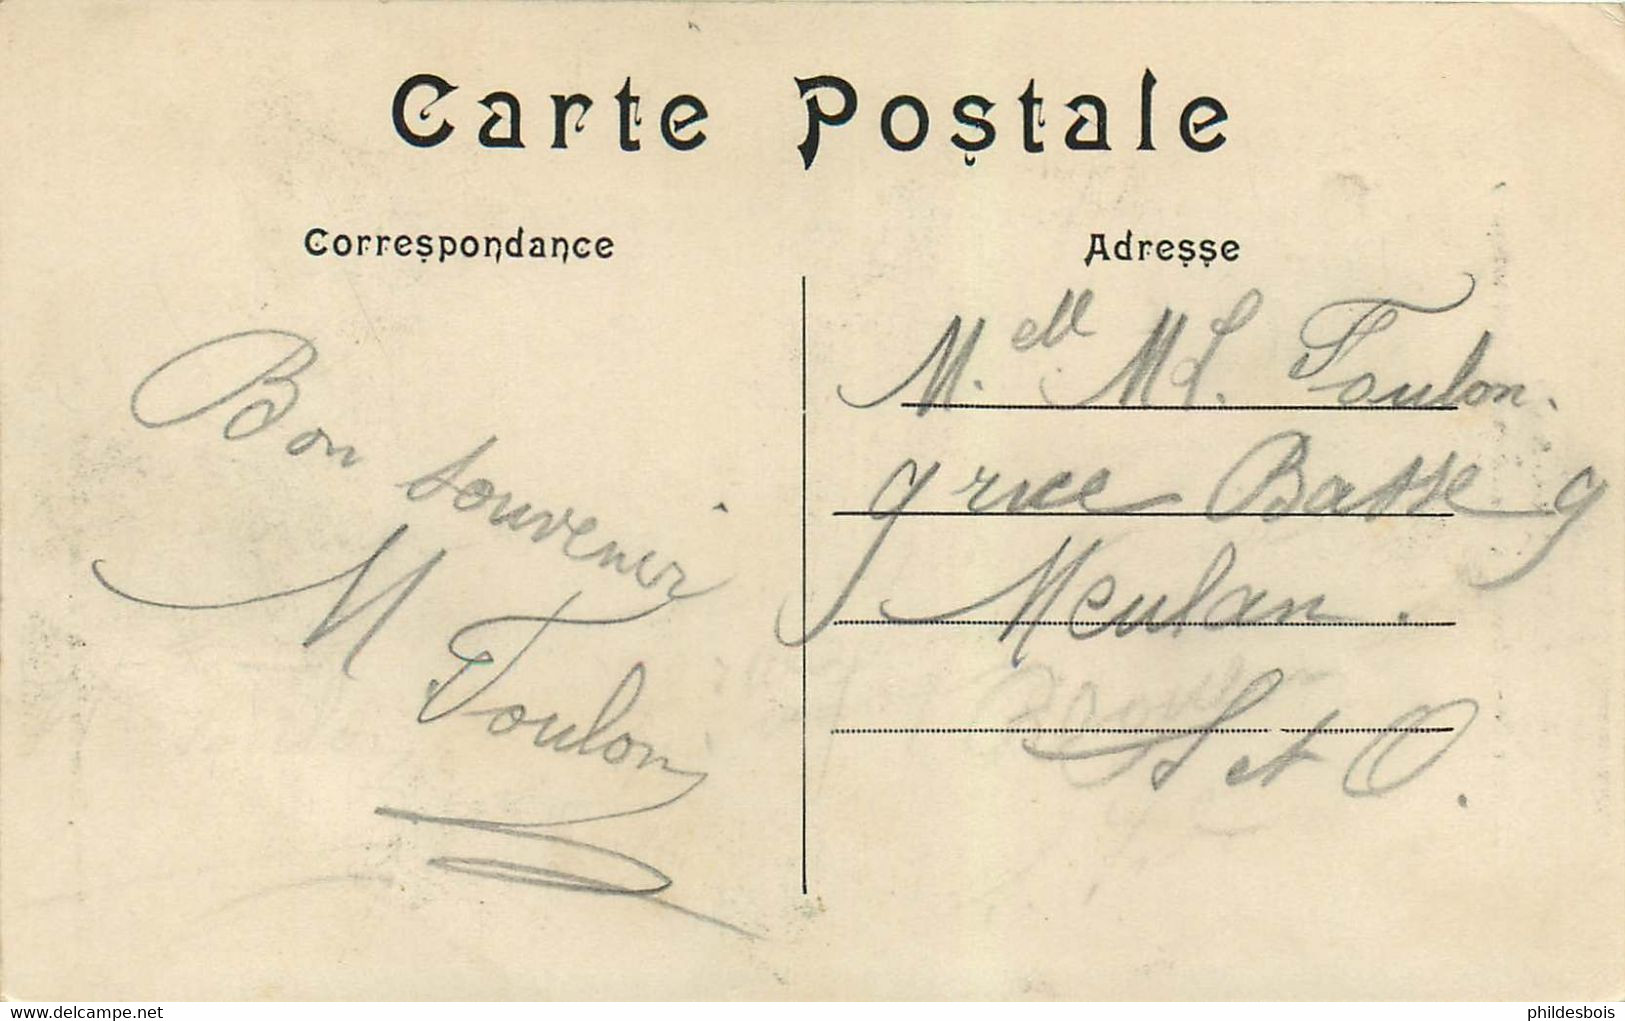 Carte Postale
Correspondance
Adresse
Bon souvenir
M Toulon
Melle ML. Toulon.
9 rue Basse 9
Meulan.
S et O.
www.delcampe.net
phildesbois